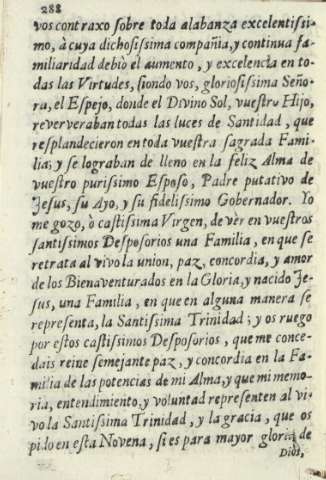 288
vos contraxo sobre toda alabanza excelentissi-
mo, à cuya dichosissima compañia, y continua fa-
miliaridad debiò el aumento, y excelencia en to-
das las Virtudes, siendo vos, gloriosissima Seño-
ra, el Espejo, donde el Divino Sol, vuestro Hijo,
reververaban todas las luces de Santidad, que
resplandecieron en toda vuestra sagrada Fami-
lia; y se lograban de lleno en la feliz Alma de
vuestro purissimo Esposo, Padre putativo de
Jesus, su Ayo, y su fidelissimo Gobernador. Yo
me gozo, ò castissima Virgen, de vèr en vuestros
santissimos Desposorios una Familia, en que se
retrata al vivo la union, paz, concordia, y amor
de los Bienaventurados en la Gloria, y nacido Je-
sus, una Familia, en que en alguna manera se
representa, la Santissima Trinidad; y os ruego
por estos castissimos Desposorios, que me conce-
dais reine semejante paz, y concordia en la Fa-
milia de las potencias de mi Alma, y que mi memo-
ria, entendimiento, y voluntad representen al vi-
vo la Santissima Trinidad, y la gracia, que os
pido en esta Novena, si es para mayor gloria de
Dios,